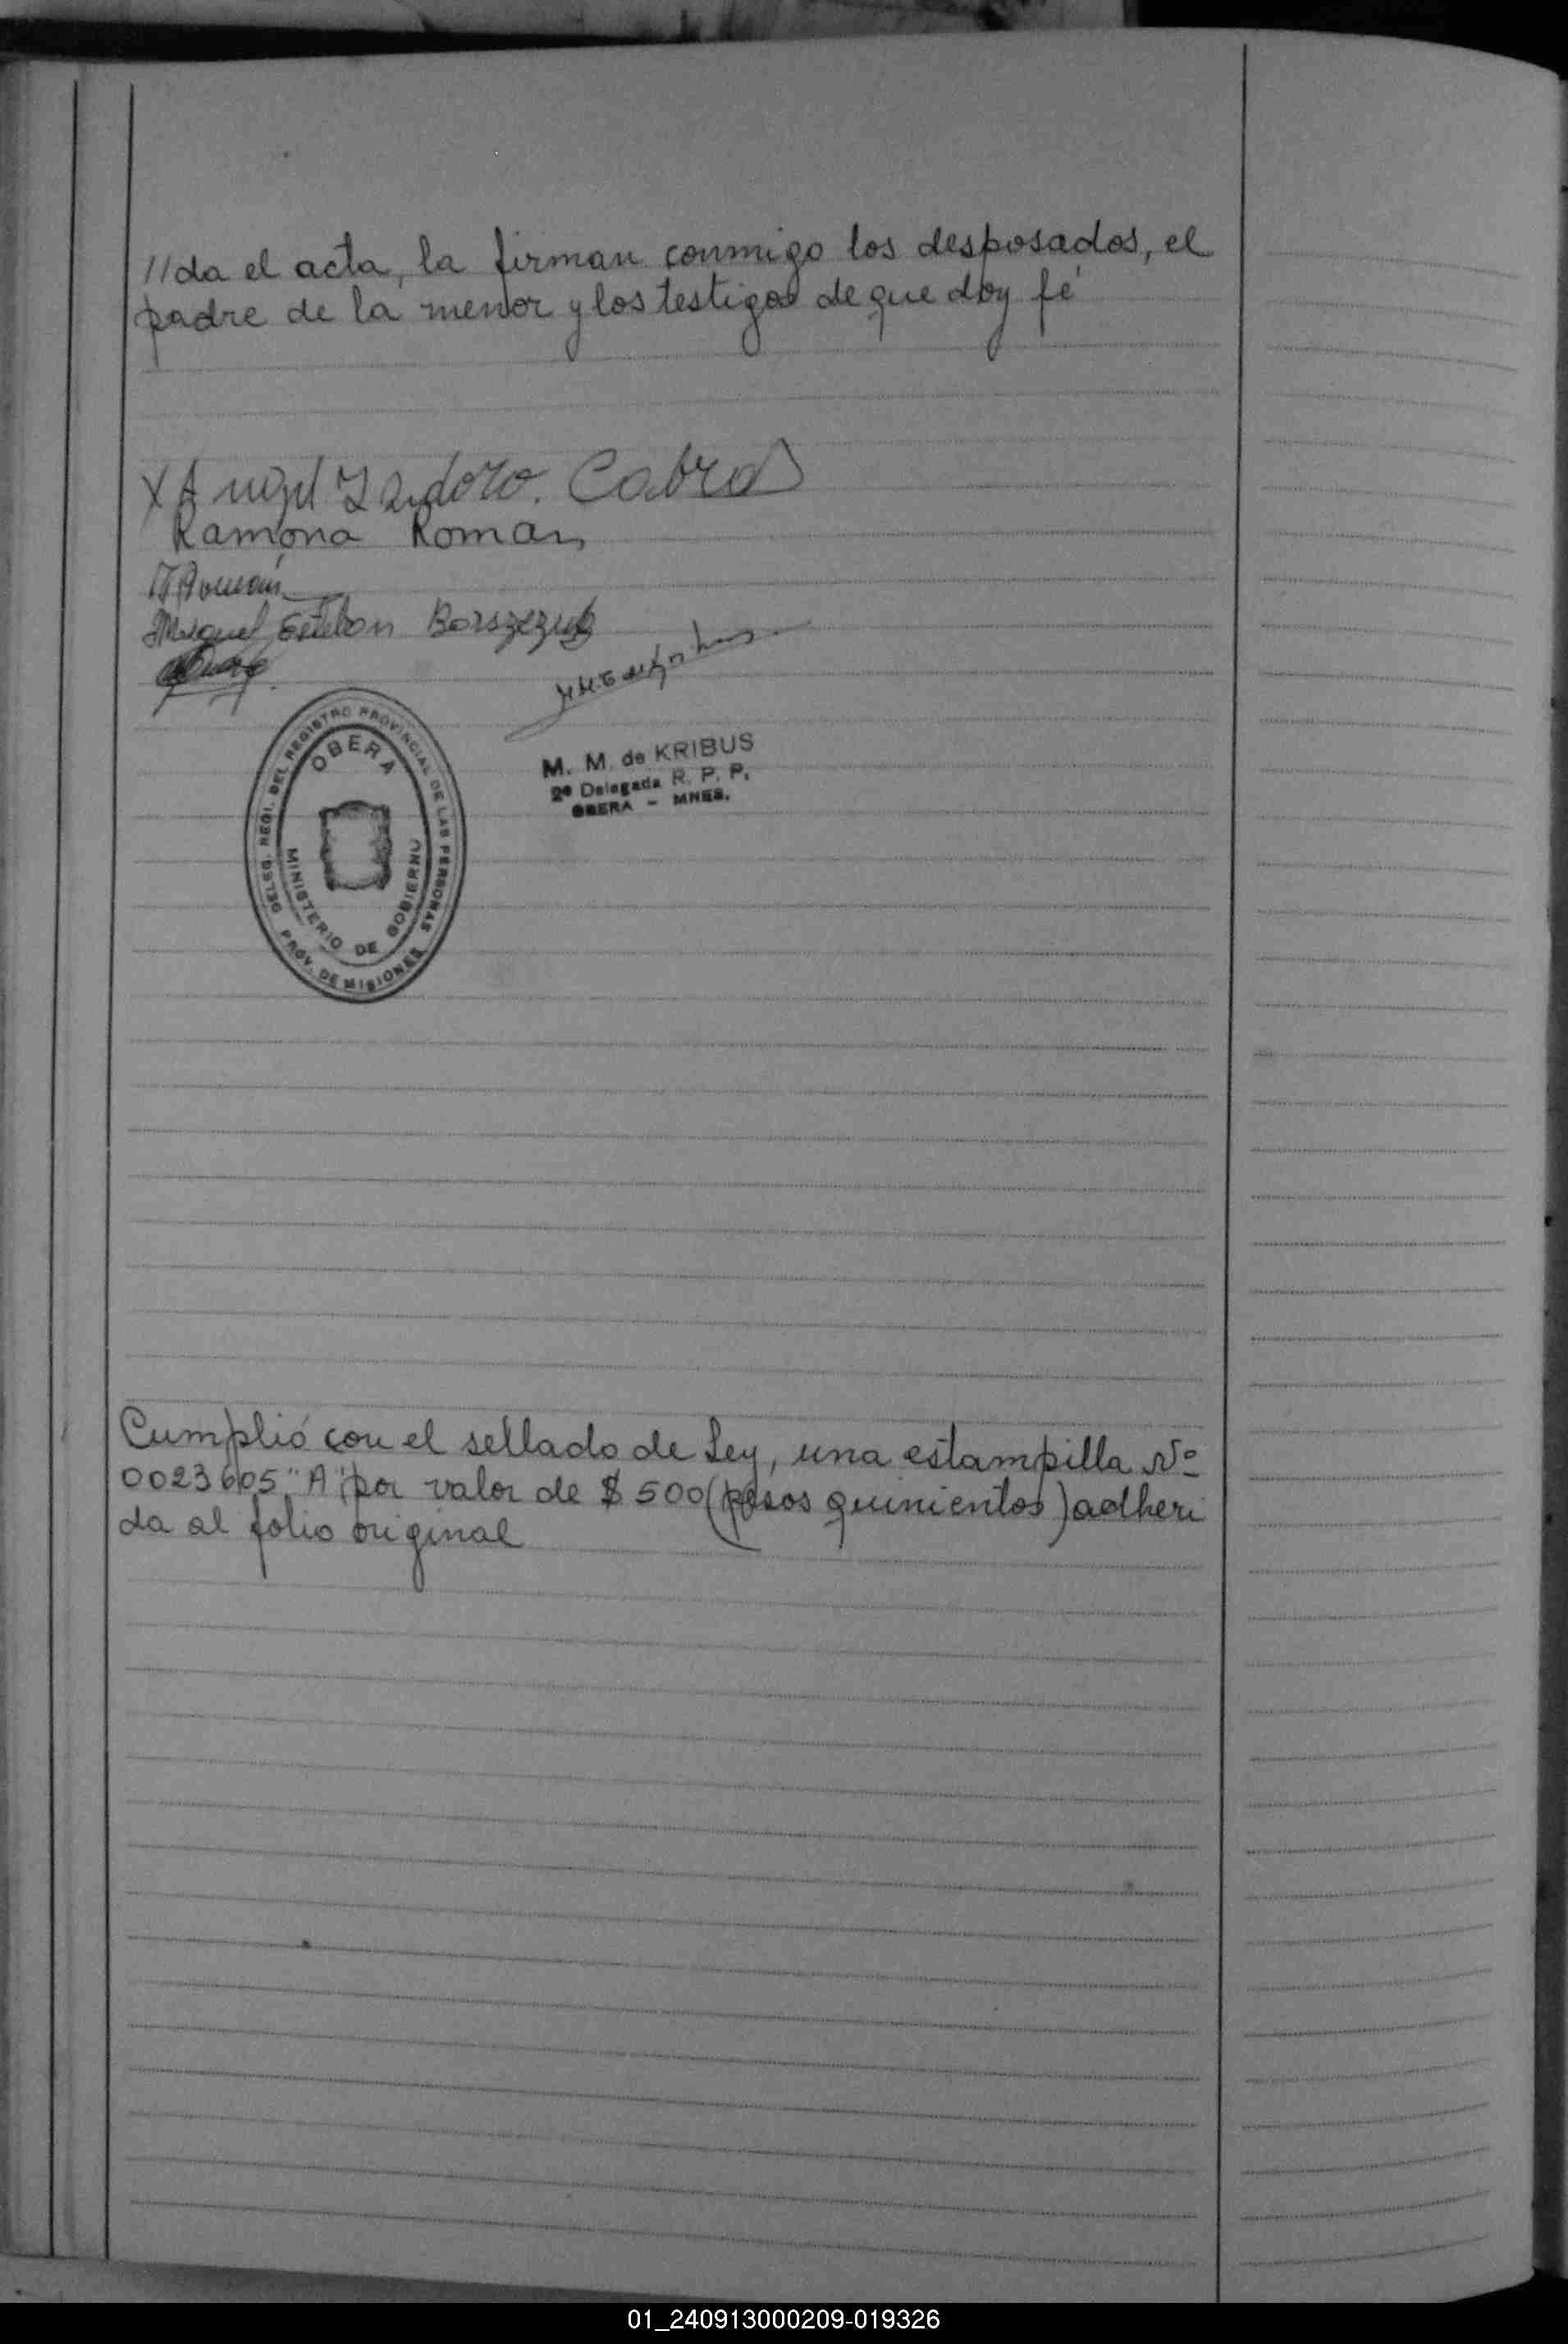 //da el acta, la firman conmigo los desposados, el
padre de la menor y los testigos de que doy fé
X Angel Isidoro. Cabral
Ramona Roman
Román
Miguel Esteban Borszezuk
DELEG. REGI. DEL REGISTRO PROVINCIAL DE LAS PERSONAS
OBERA
MINISTERIO DE GOBIERNO
PROV. DE MISIONES
M. M. de KRIBUS
2ª Delegada R. P. P.
OBERA - MNES.
Cumplió con el sellado de Ley, una estampilla Nº
0023605 "A" por valor de $ 500 (pesos quinientos) adheri
da al folio original
01_240913000209-019326